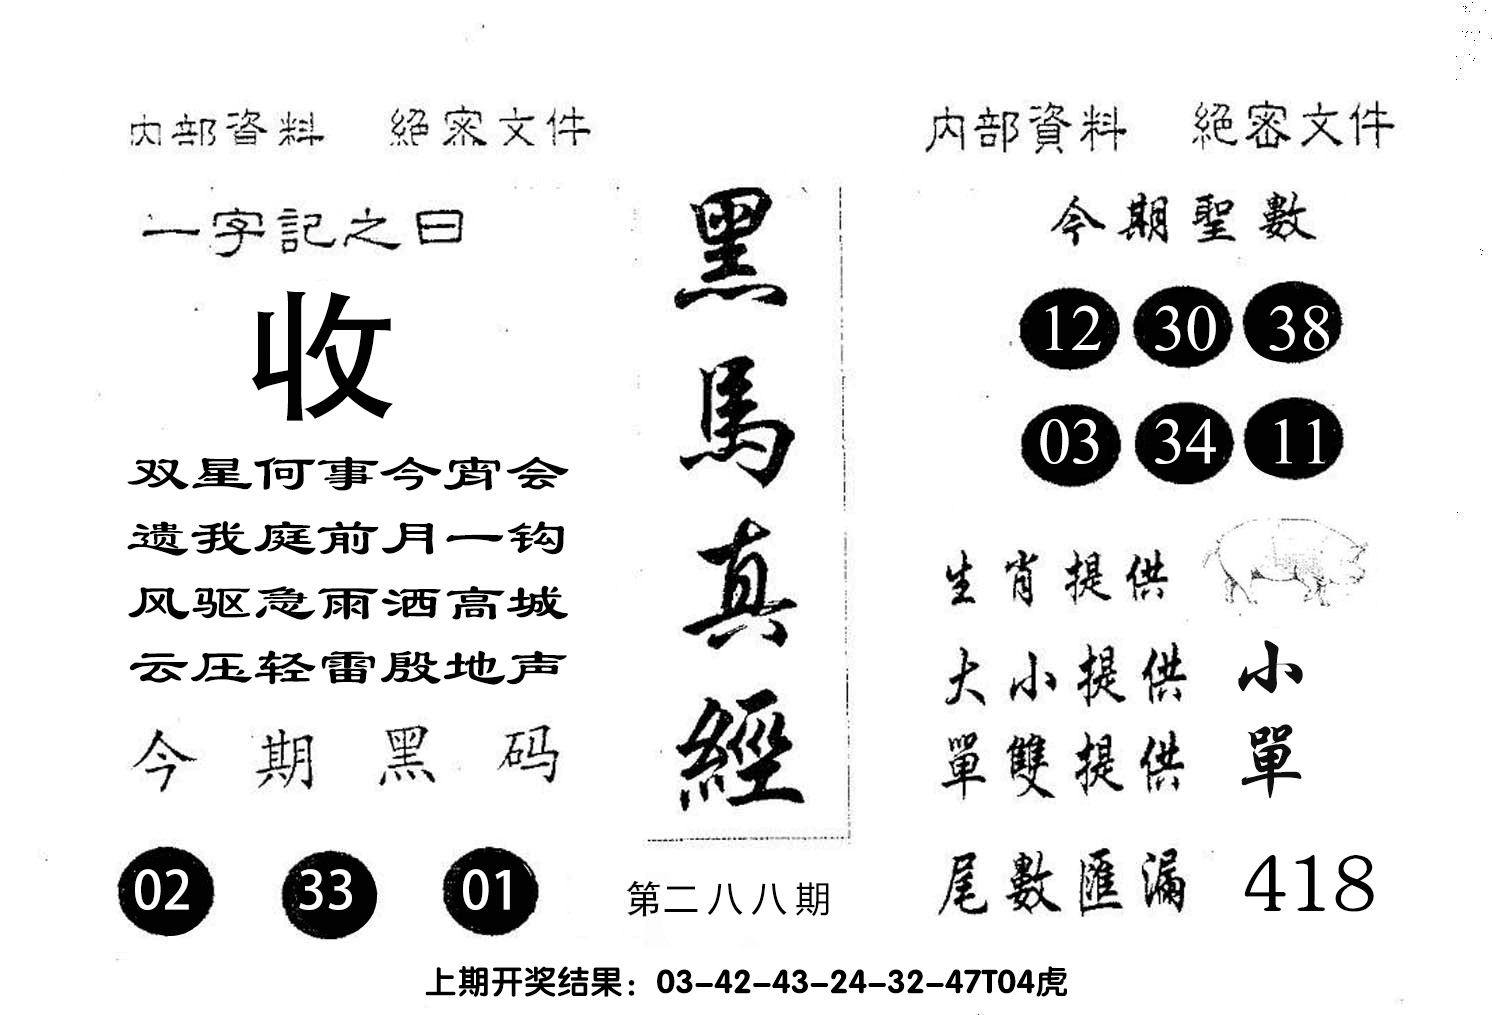 內部資料 絕密文件
一字記之曰
收
双星何事今宵会
遗我庭前月一钩
风驱急雨洒高城
云压轻雷殷地声
今期黑码
02 33 01
黑馬真經
第二八八期
內部資料 絕密文件
今期聖數
12 30 38
03 34 11
生肖提供
大小提供 小
單雙提供 單
尾數匯漏 418
上期开奖结果：03-42-43-24-32-47T04虎